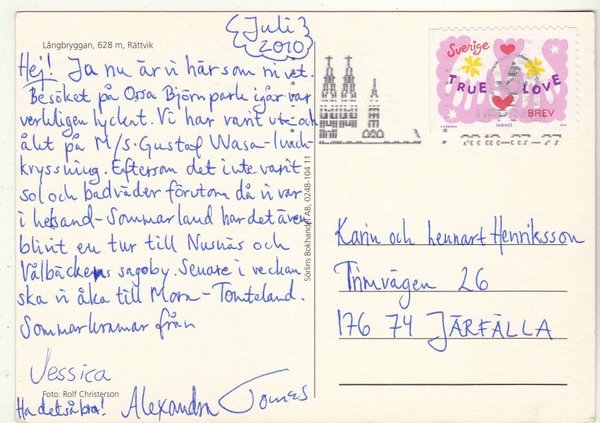 Långbryggan, 628 m, Rättvik
Juli
2010
Hej! Ja nu är vi här som ni vet.
Besöket på Orsa Björnpark igår var
verkligen lyckat. Vi har varit ute och
åkt på M/S Gustaf Wasa-lunch-
kryssning. Eftersom det inte varit
sol och badväder förutom då vi var
i Leksand-Sommarland har det även
blivit en tur till Nusnäs och
Vålbäckens sagoby. Senare i veckan
ska vi åka till Mora-Tomteland.
Sommarkramar från
Jessica
Foto: Rolf Christerson
Ha det så bra! Alexandra Tomas
Sörlins Bokhandel AB, 0248-104 11
Sverige
TRUE LOVE
BREV
SVERIGE
Karin och Lennart Henriksson
Trimvägen 26
176 74 JÄRFÄLLA